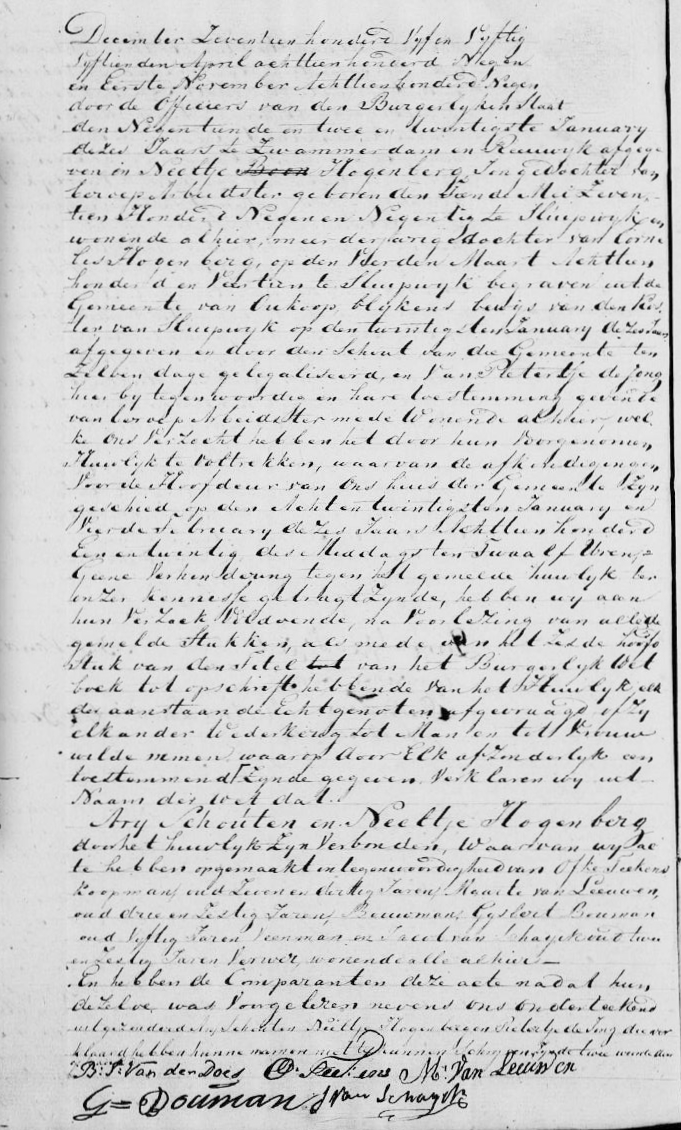 December Zeventien honderd Vyf en Vyftig
Vyftienden April achttienhonderd Negen
en Eerste November Achttienhonderd Negen
door de Officiers van den Burgerlyken Staat
den Negentiende en twee en twentigste January
dezes Jaars te Zwammerdam en Reeuwyk afgege
ven en Neeltje Boon Hogenberg, Jongedochter van
beroep Arbeidster geboren den Mei Zeven
tien Honderd Negen en Negentig te Sluipwyk en
wonende alhier, meerderjarige dochter van Corne
lis Hogenberg, op den Vierden Maart Achttien
honderd en Veertien te Sluipwyk begraven uit de
Gemeente van Oukoop, blykens bewys van den Kos
ter van Sluipwyk op den twintigsten January dezes Jaars
afgegeven en door den Schout van die Gemeente ten
zelven dage gelegaliseerd, en Van Pietertje de Jong
hier by tegenwoordig en hare toestemming gevende
van beroep Arbeidster mede Wonende alhier, wel
ke ons Verzocht hebben het door hun Voorgenomen
Huwlyk te Voltrekken, waarvan de afkondigingen
Voor de Hoofdeur van Ons huis der Gemeente Zyn
geschied, op den Acht en twintigsten January en
Vierde February dezes Jaars Achttien honderd
Een en twintig, des Middags ten Twaalf Uren,
Geene Verhindering tegen het gemelde huwlyk ter
onzer kennisse gebragt Zynde, hebben wy aan
hun Verzoek Voldoende, na Voorlezing van alle de
gemelde Stukken, als mede van het zesde hoofd
stuk van den Titel tot van het Burgerlyk Wet
boek tot opschrift hebbende Van het Huwlyk, elk
der aanstaande Echtgenoten afgevraagd of Zy
elkander Wederkeerig tot Man en tot Vrouw
wilde nemen, waarop door Elk afzonderlyk een
toestemmend Zynde gegeven, Verklaren wy uit
Naam der wet dat
Ary Schouten en Neeltje Hogenberg
door het huwlyk Zyn Verbonden, Waarvan wy ac
te hebben opgemaakt in tegenwoordigheid van
Koopman, oud Zeven en dertig Jaren, Maarte van Leeuwen,
oud drie en Zestig Jaren, Bouwman, Gysbert Bouman
oud Vyftig Jaren Veenman en Jacob van Schayk oud twee
en Zestig Jaren Verwer, wonende alle alhier
En hebben de Comparanten deze acte nadat hun
dezelve was Voorgelezen nevens ons onderteekend
uitgezonderd Ary Schouten Neeltje Hogenberg en Pietertje de Jong die ver
klaard hebben hunne namen niet te kunnen Schryven
B: P: Van der Does M: Van Leeuwen
G= Bouman J Van Schayk